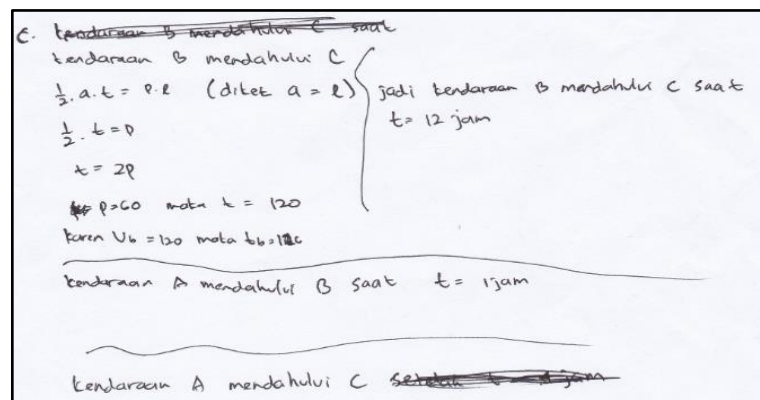 c. kendaraan B mendahului C saat
kendaraan B mendahului C
1/2 . a . t = p . l (diket a = l)
1/2 . t = p
t = 2p
p = 60 maka t = 120
karen Vb = 120 maka tb =
jadi kendaraan B mendahului C saat
t = 12 jam
kendaraan A mendahului B saat t = 1 jam
kendaraan A mendahului C setelah t = 1 jam